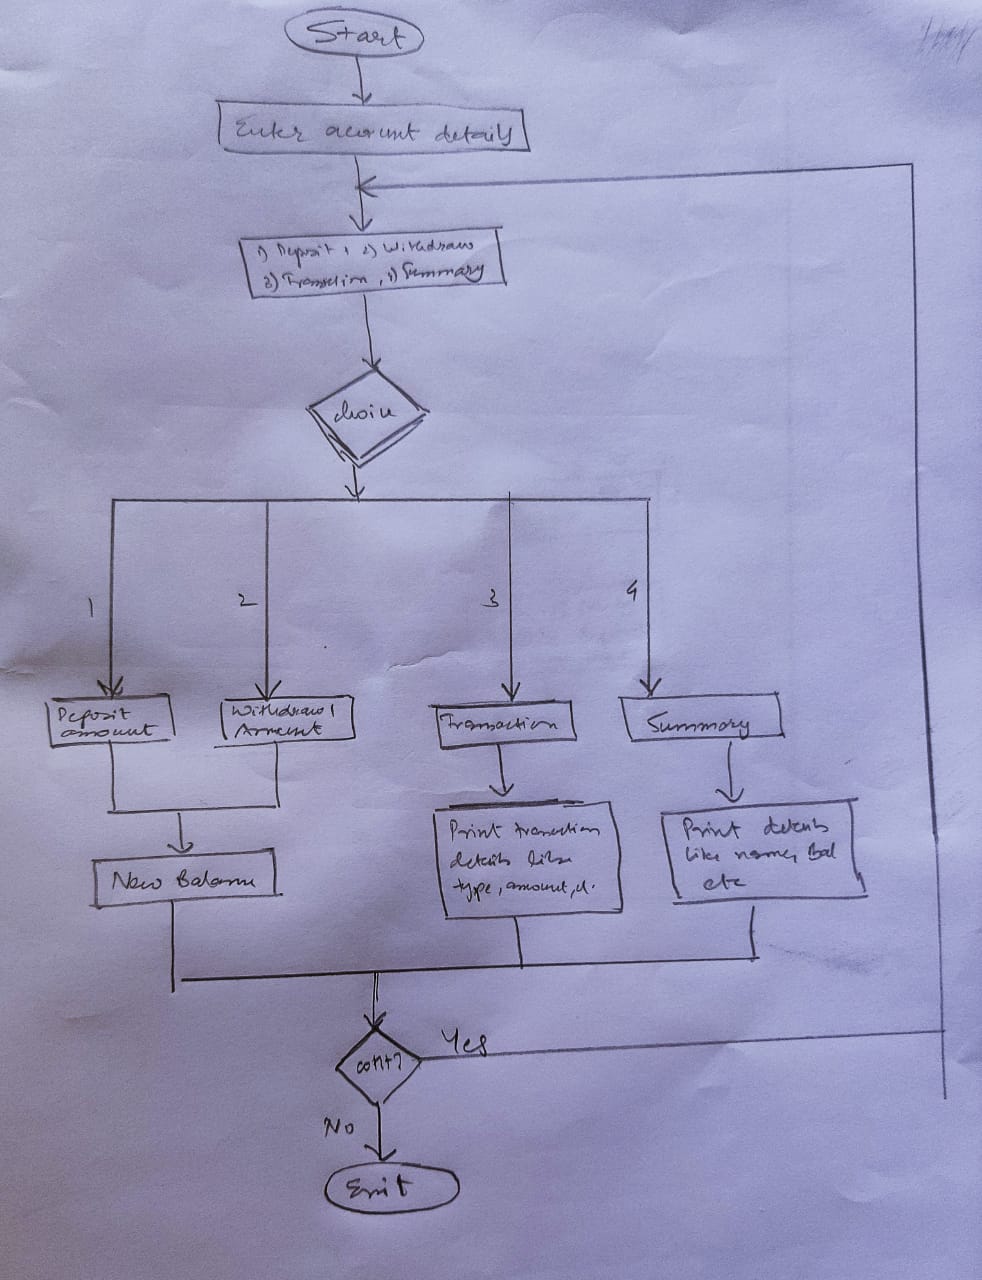 Start
Enter account details
1) Deposit, 2) Withdraw
3) Transaction, 4) Summary
choice
1
2
3
4
Deposit
amount
Withdrawl
Amount
Transaction
Summary
Print transaction
details like
type, amount,
Print details
like name, Bal
etc
New Balance
cont?
Yes
No
Exit